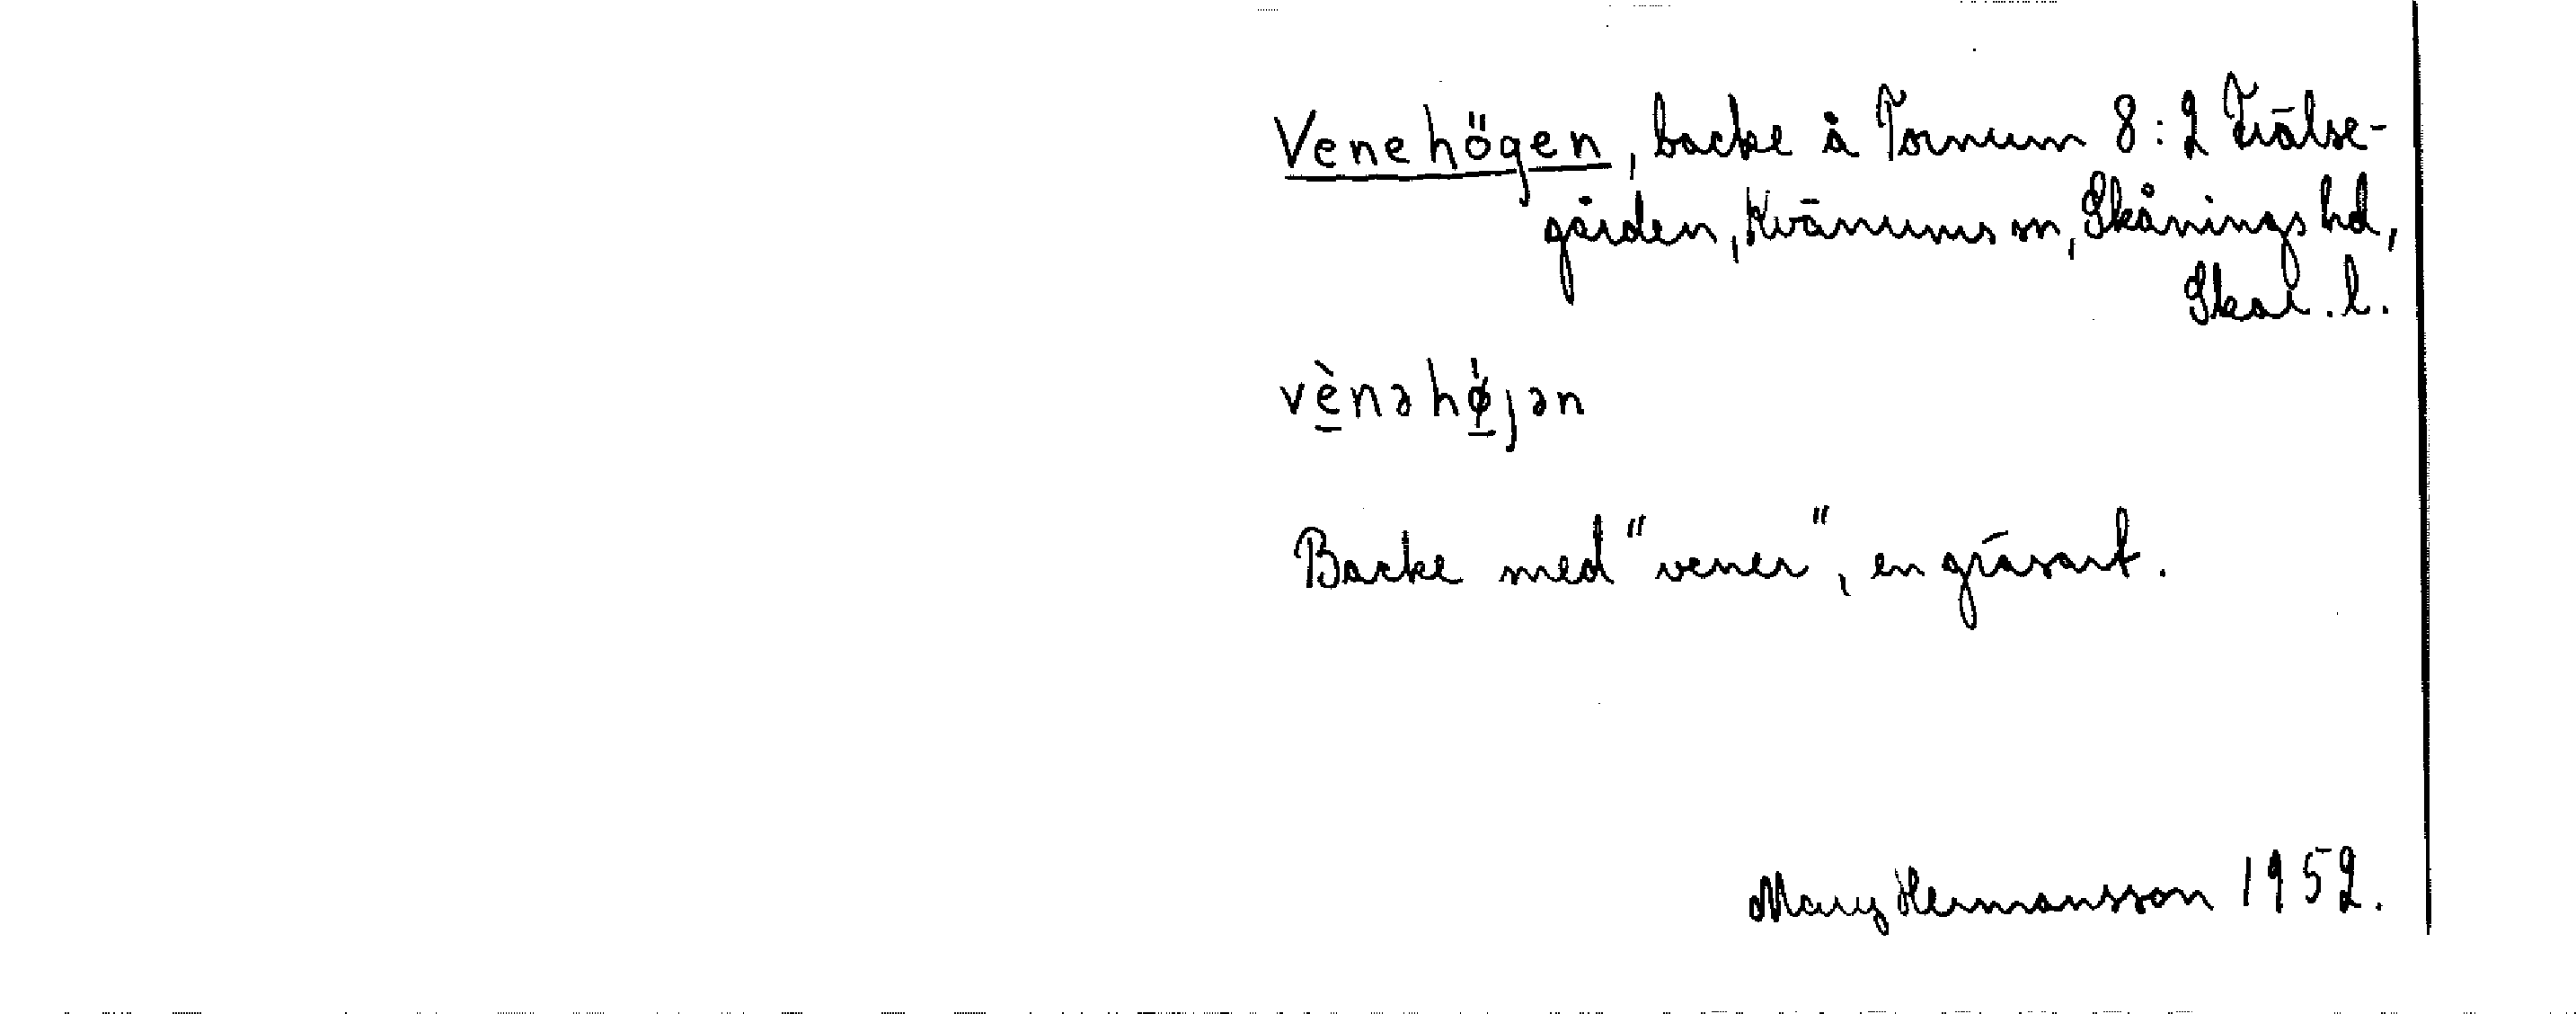 Venehögen, backe å Tornum 8:2 Frälse-
gården, Kvänums sn, Skånings hd,
Skar. l.
vènəhø̀jən
Backe med "vener", en gräsart.
Mary Hermansson 1952.